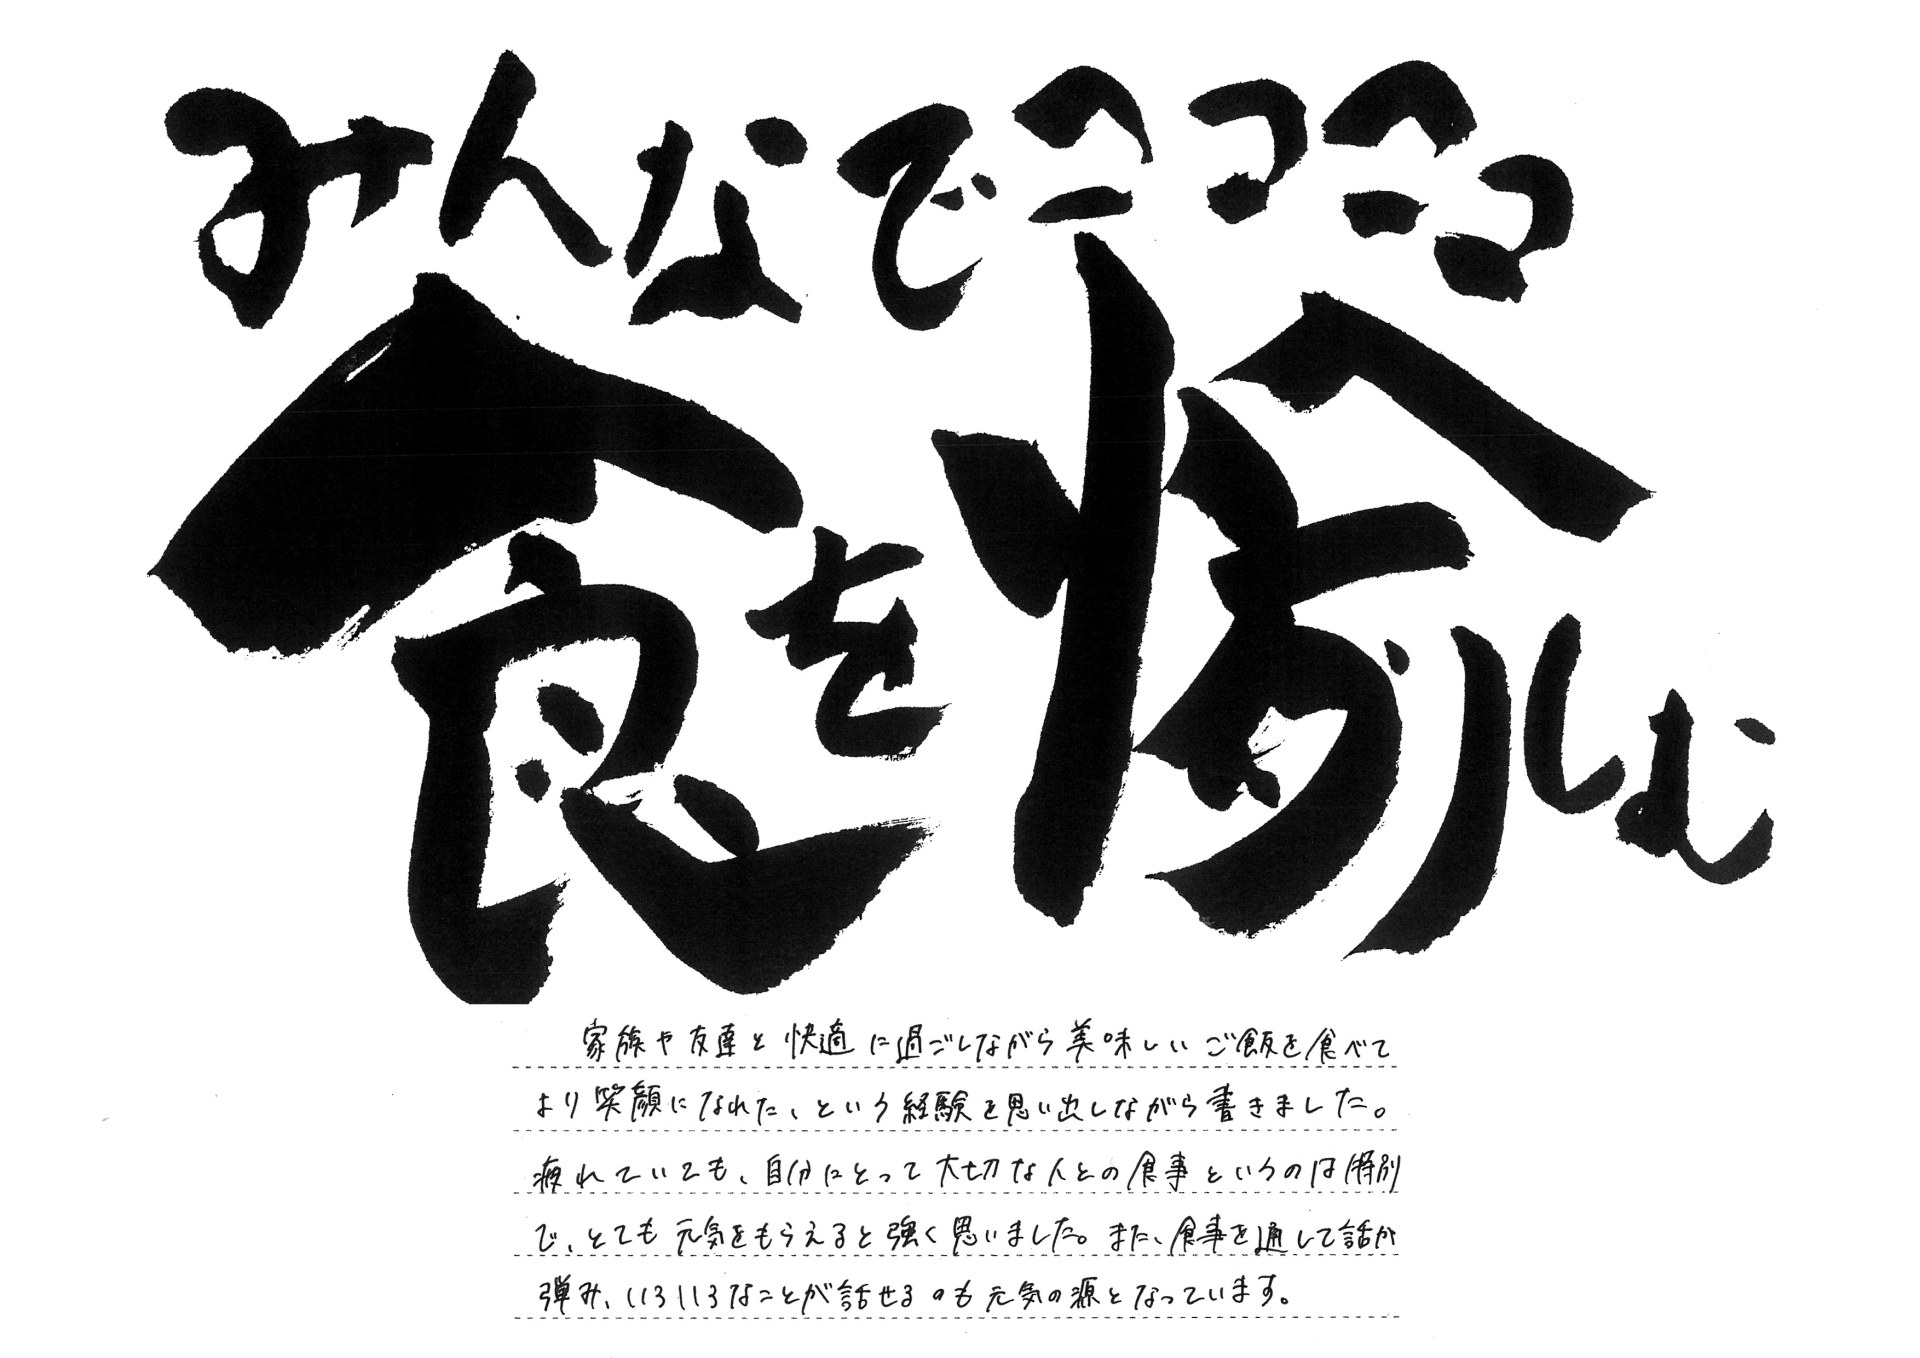 みんなでニコニコ
食を愉しむ
家族や友達と快適に過ごしながら美味しいご飯を食べて
より笑顔になれた、という経験を思い出しながら書きました。
疲れていても、自分にとって大切な人との食事というのは特別
で、とても元気をもらえると強く思いました。また、食事を通して話が
弾み、いろいろなことが話せるのも元気の源となっています。